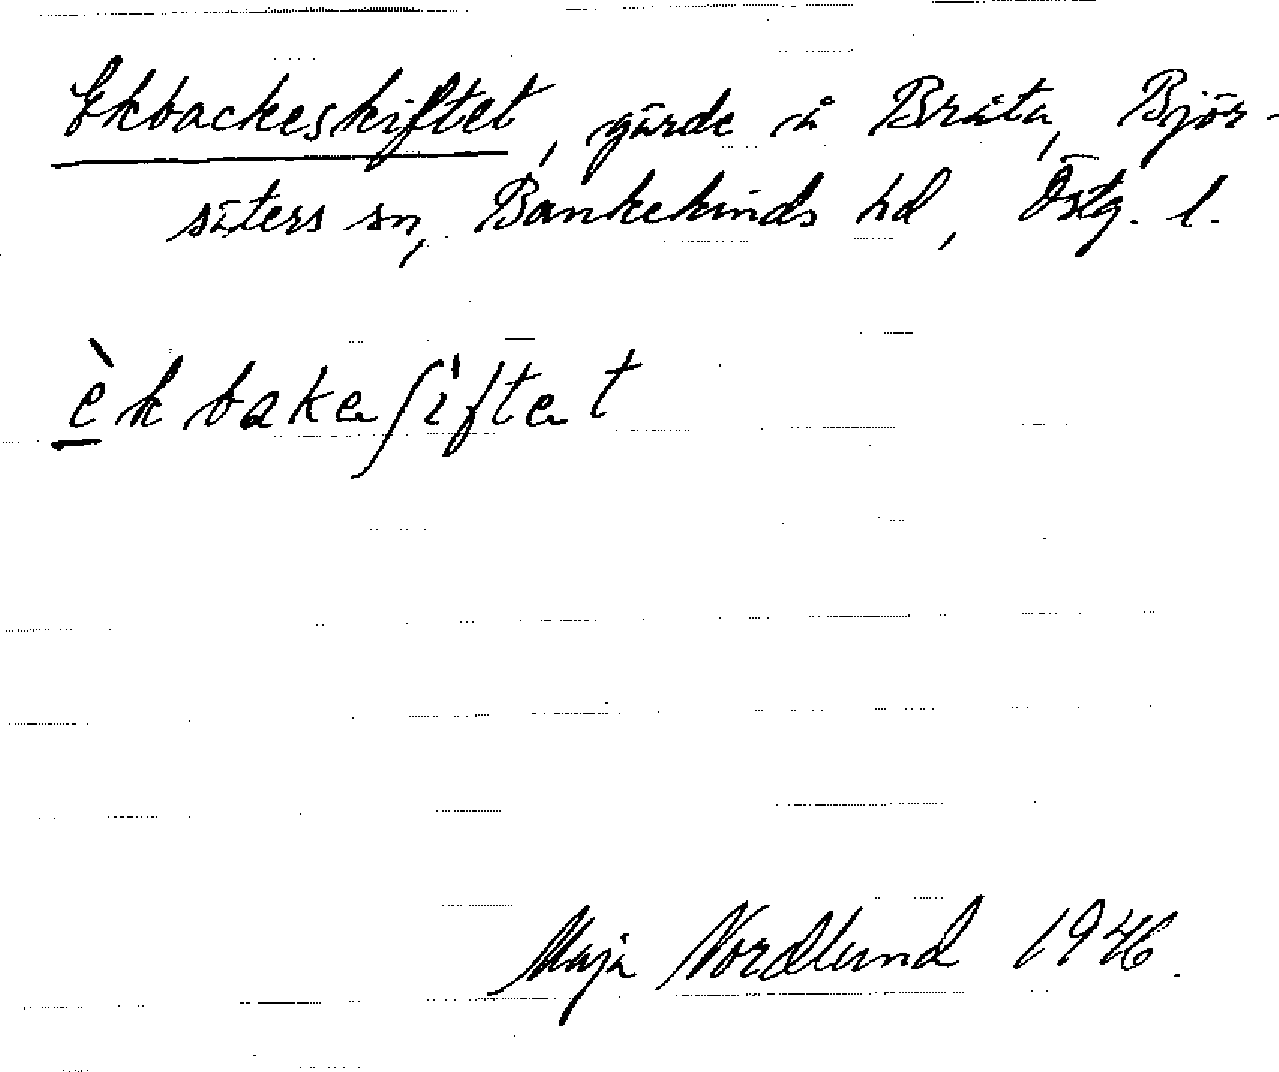 Ekbackeskiftet, gärde å Bråta, Björ-
säters sn, Bankekinds hd, Östg. l.
èkbakeʃiftet
Maja Nordlund 1946.